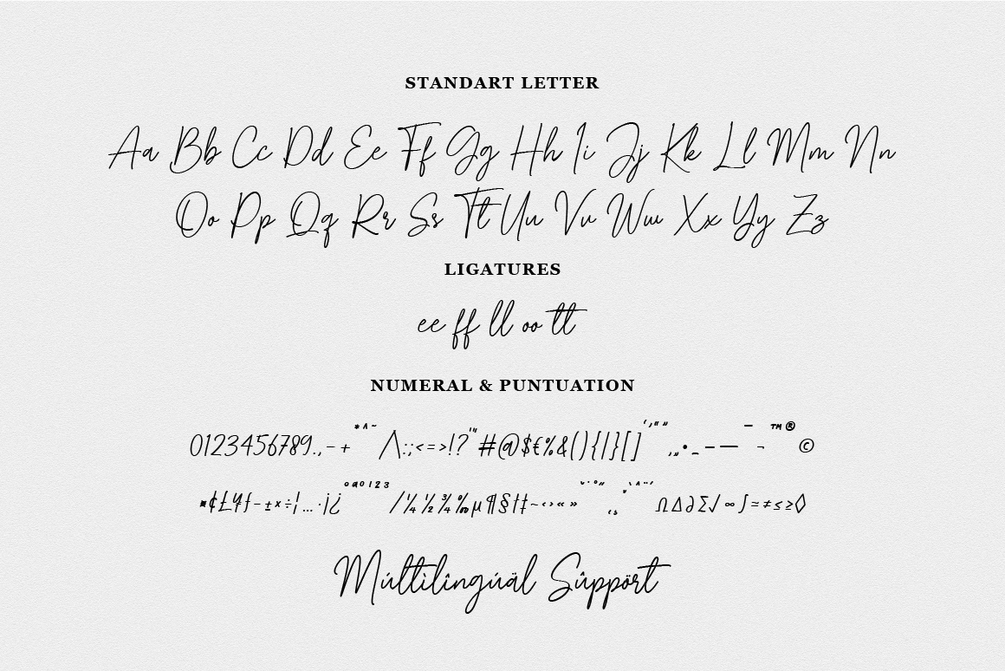 STANDART LETTER
Aa Bb Cc Dd Ee Ff Gg Hh Ii Jj Kk Ll Mm Nn
Oo Pp Qq Rr Ss Tt Uu Vv Ww Xx Yy Zz
LIGATURES
ee ff ll oo tt
NUMERAL & PUNTUATION
0123456789.,-+*^~/\:;<=>!?"'#@$€%&(){|}[]‘’“”‚„•_–—¯¬™®©
¤¢£¥ƒ-±×÷¡…·¡¿ºª⁰¹²³/¼½¾‰µ¶§†‡~‹›«»˘˙˚˝¸˛ˇ`^¨´ΩΔ∂∑√∞∫≈≠≤≥◊
Múltìlîngúäl Sûppört